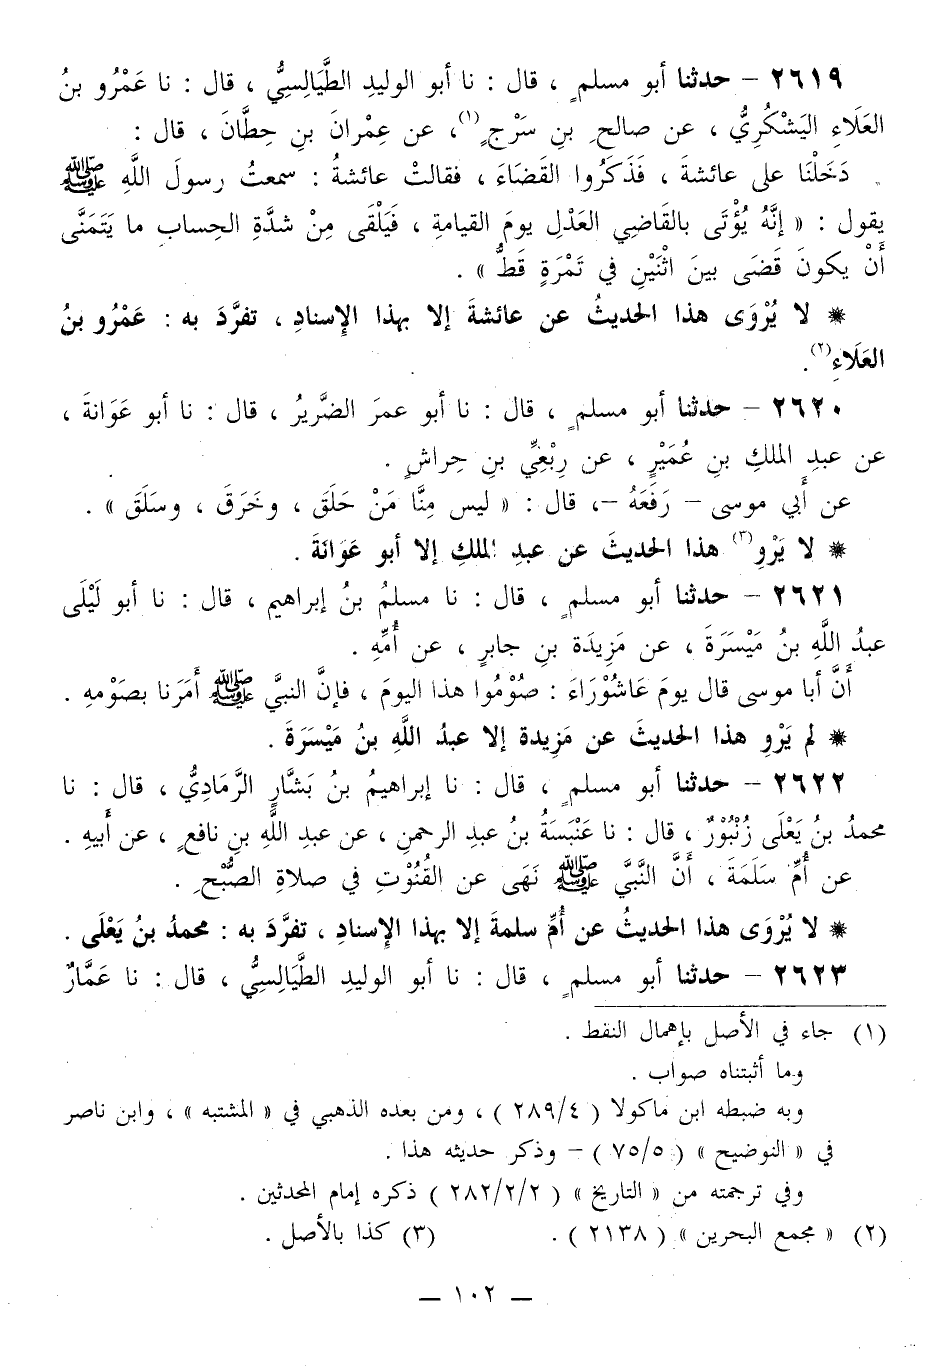 ٢٦١٩ - حدثنا أبو مسلمٍ ، قال : نا أبو الوليدِ الطَّيَالِسِيُّ ، قال : نا عَمْرُو بنُ
العَلَاءِ اليَشْكُرِيُّ ، عن صالحِ بنِ سَرْجٍ(١)، عن عِمْرانَ بنِ حِطَّانَ ، قال :
دَخَلْنَا على عائشةَ ، فَذَكَرُوا القَضَاءَ ، فقالتْ عائشةُ : سمعتُ رسولَ اللَّهِ ﷺ
يقول : « إنَّهُ يُؤْتَى بالقَاضِي العَدْلِ يومَ القيامةِ ، فَيَلْقَى مِنْ شدَّةِ الحِساب ما يَتَمَنَّى
أَنْ يكونَ قَضَى بينَ اثْنَيْنِ في تَمْرَةٍ قَطُّ » .
* لا يُرْوَى هذا الحديثُ عن عائشةَ إلا بهذا الإسنادِ ، تفرَّدَ به : عَمْرُو بنُ
العَلَاءِ(٢).
٢٦٢٠ - حدثنا أبو مسلمٍ ، قال : نا أبو عمرَ الضَّريرُ ، قال : نا أبو عَوَانةَ ،
عن عبدِ الملكِ بنِ عُمَيْرٍ ، عن رِبْعِيِّ بنِ حِراشٍ .
عن أَبي موسى - رَفَعَهُ -، قال : « ليس مِنَّا مَنْ حَلَقَ ، وخَرَقَ ، وسَلَقَ » .
* لا يَرْوِ(٣) هذا الحديثَ عن عبدِ الملكِ إلا أبو عَوَانَةَ .
٢٦٢١ - حدثنا أبو مسلمٍ ، قال : نا مسلمُ بنُ إبراهيم ، قال : نا أبو لَيْلَى
عبدُ اللَّهِ بنُ مَيْسَرَةَ ، عن مَزِيدَة بنِ جابرٍ ، عن أُمِّهِ .
أَنَّ أبا موسى قال يومَ عَاشُوْرَاءَ : صُوْمُوا هذا اليومَ ، فإنَّ النبيَّ ﷺ أَمَرَنا بصَوْمِهِ .
* لم يَرْوِ هذا الحديثَ عن مَزِيدة إلا عبدُ اللَّهِ بنُ مَيْسَرَةَ .
٢٦٢٢ - حدثنا أبو مسلمٍ ، قال : نا إبراهيمُ بنُ بَشَّارٍ الرَّمَادِيُّ ، قال : نا
محمدُ بنُ يَعْلَى زُنْبُوْرٌ ، قال : نا عَنْبَسَةُ بنُ عبدِ الرحمنِ ، عن عبدِ اللَّهِ بنِ نافعٍ ، عن أَبيهِ .
عن أُمِّ سَلَمَةَ ، أَنَّ النَّبيَّ ﷺ نَهَى عن القُنُوْتِ في صلاةِ الصُّبْحِ .
* لا يُرْوَى هذا الحديثُ عن أُمِّ سلمةَ إلا بهذا الإسنادِ ، تفرَّدَ به : محمدُ بنُ يَعْلَى .
٢٦٢٣ - حدثنا أبو مسلمٍ ، قال : نا أبو الوليدِ الطَّيَالِسِيُّ ، قال : نا عَمَّارٌ
(١) جاء في الأصل بإهمال النقط .
وما أثبتناه صواب .
وبه ضبطه ابن ماكولا ( ٢٨٩/٤ ) ، ومن بعده الذهبي في « المشتبه » ، وابن ناصر
في « التوضيح » ( ٧٥/٥ ) - وذكر حديثه هذا .
وفي ترجمته من « التاريخ » ( ٢٨٢/٢/٢ ) ذكره إمام المحدثين .
(٢) « مجمع البحرين » ( ٢١٣٨ ) . (٣) كذا بالأصل .
— ١٠٢ —